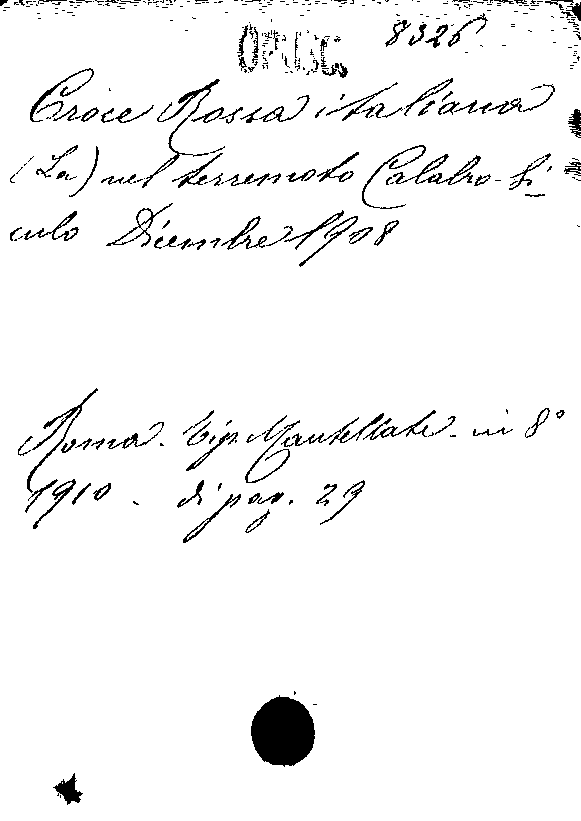 OPUSC. 8326
Croce Rossa italiana
(La) nel terremoto Calabro-Si
culo Dicembre 1908
Roma. Tip. Mantellate. in 8°
1910 - di pag. 29